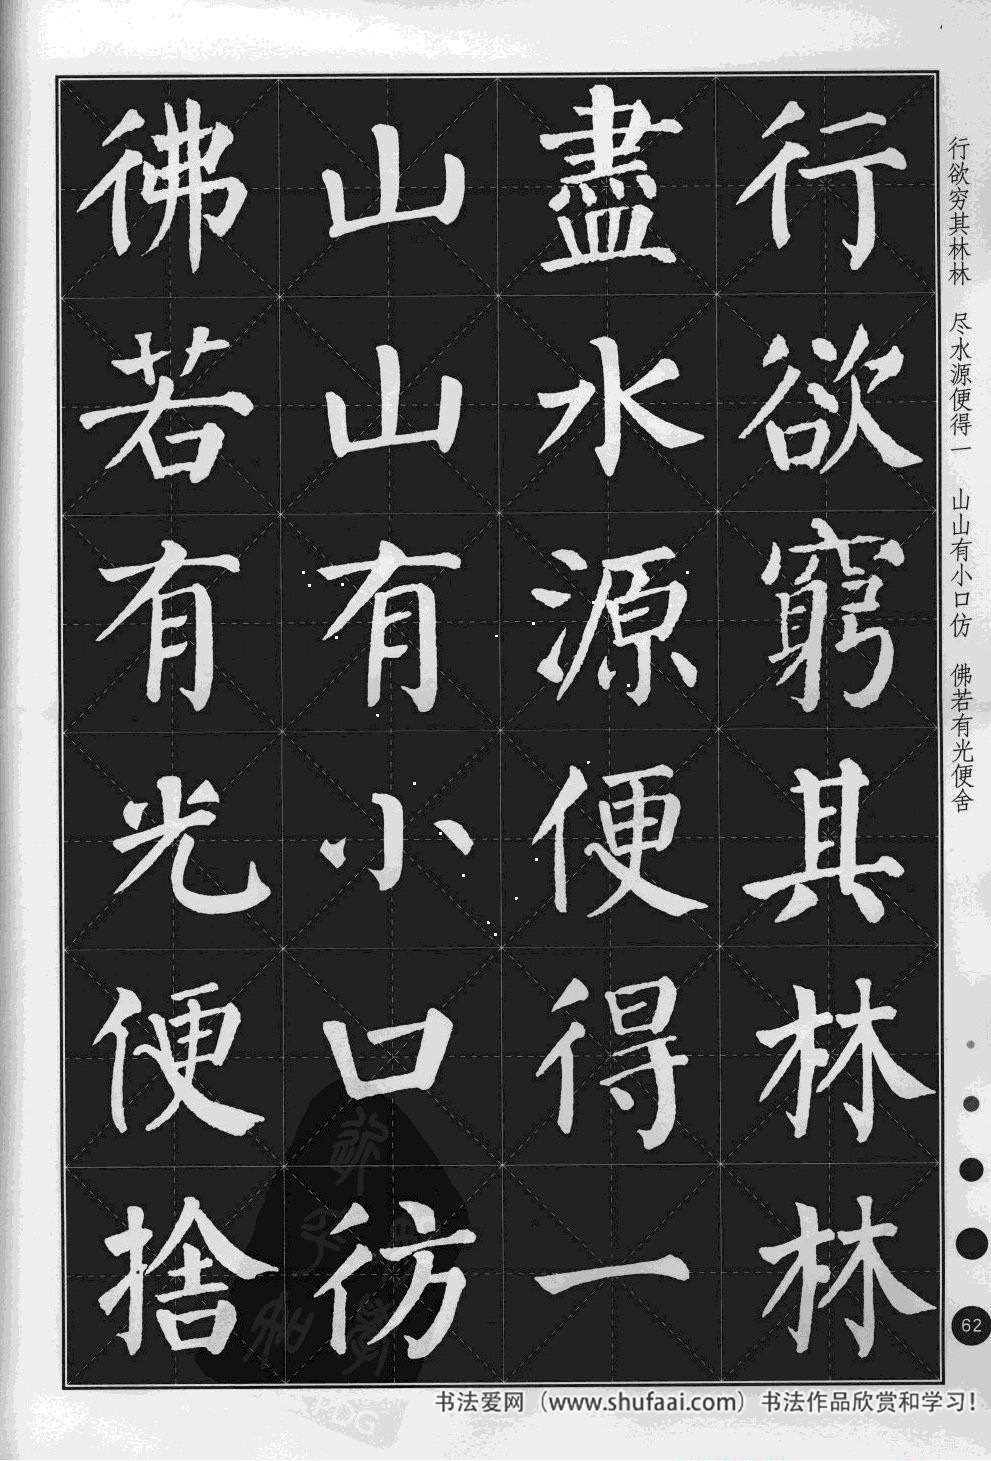 行欲窮其林林
盡水源便得一
山山有小口彷
彿若有光便捨
行欲穷其林林 尽水源便得一 山山有小口仿 佛若有光便舍
62
书法爱网（www.shufaai.com）书法作品欣赏和学习！
PDG